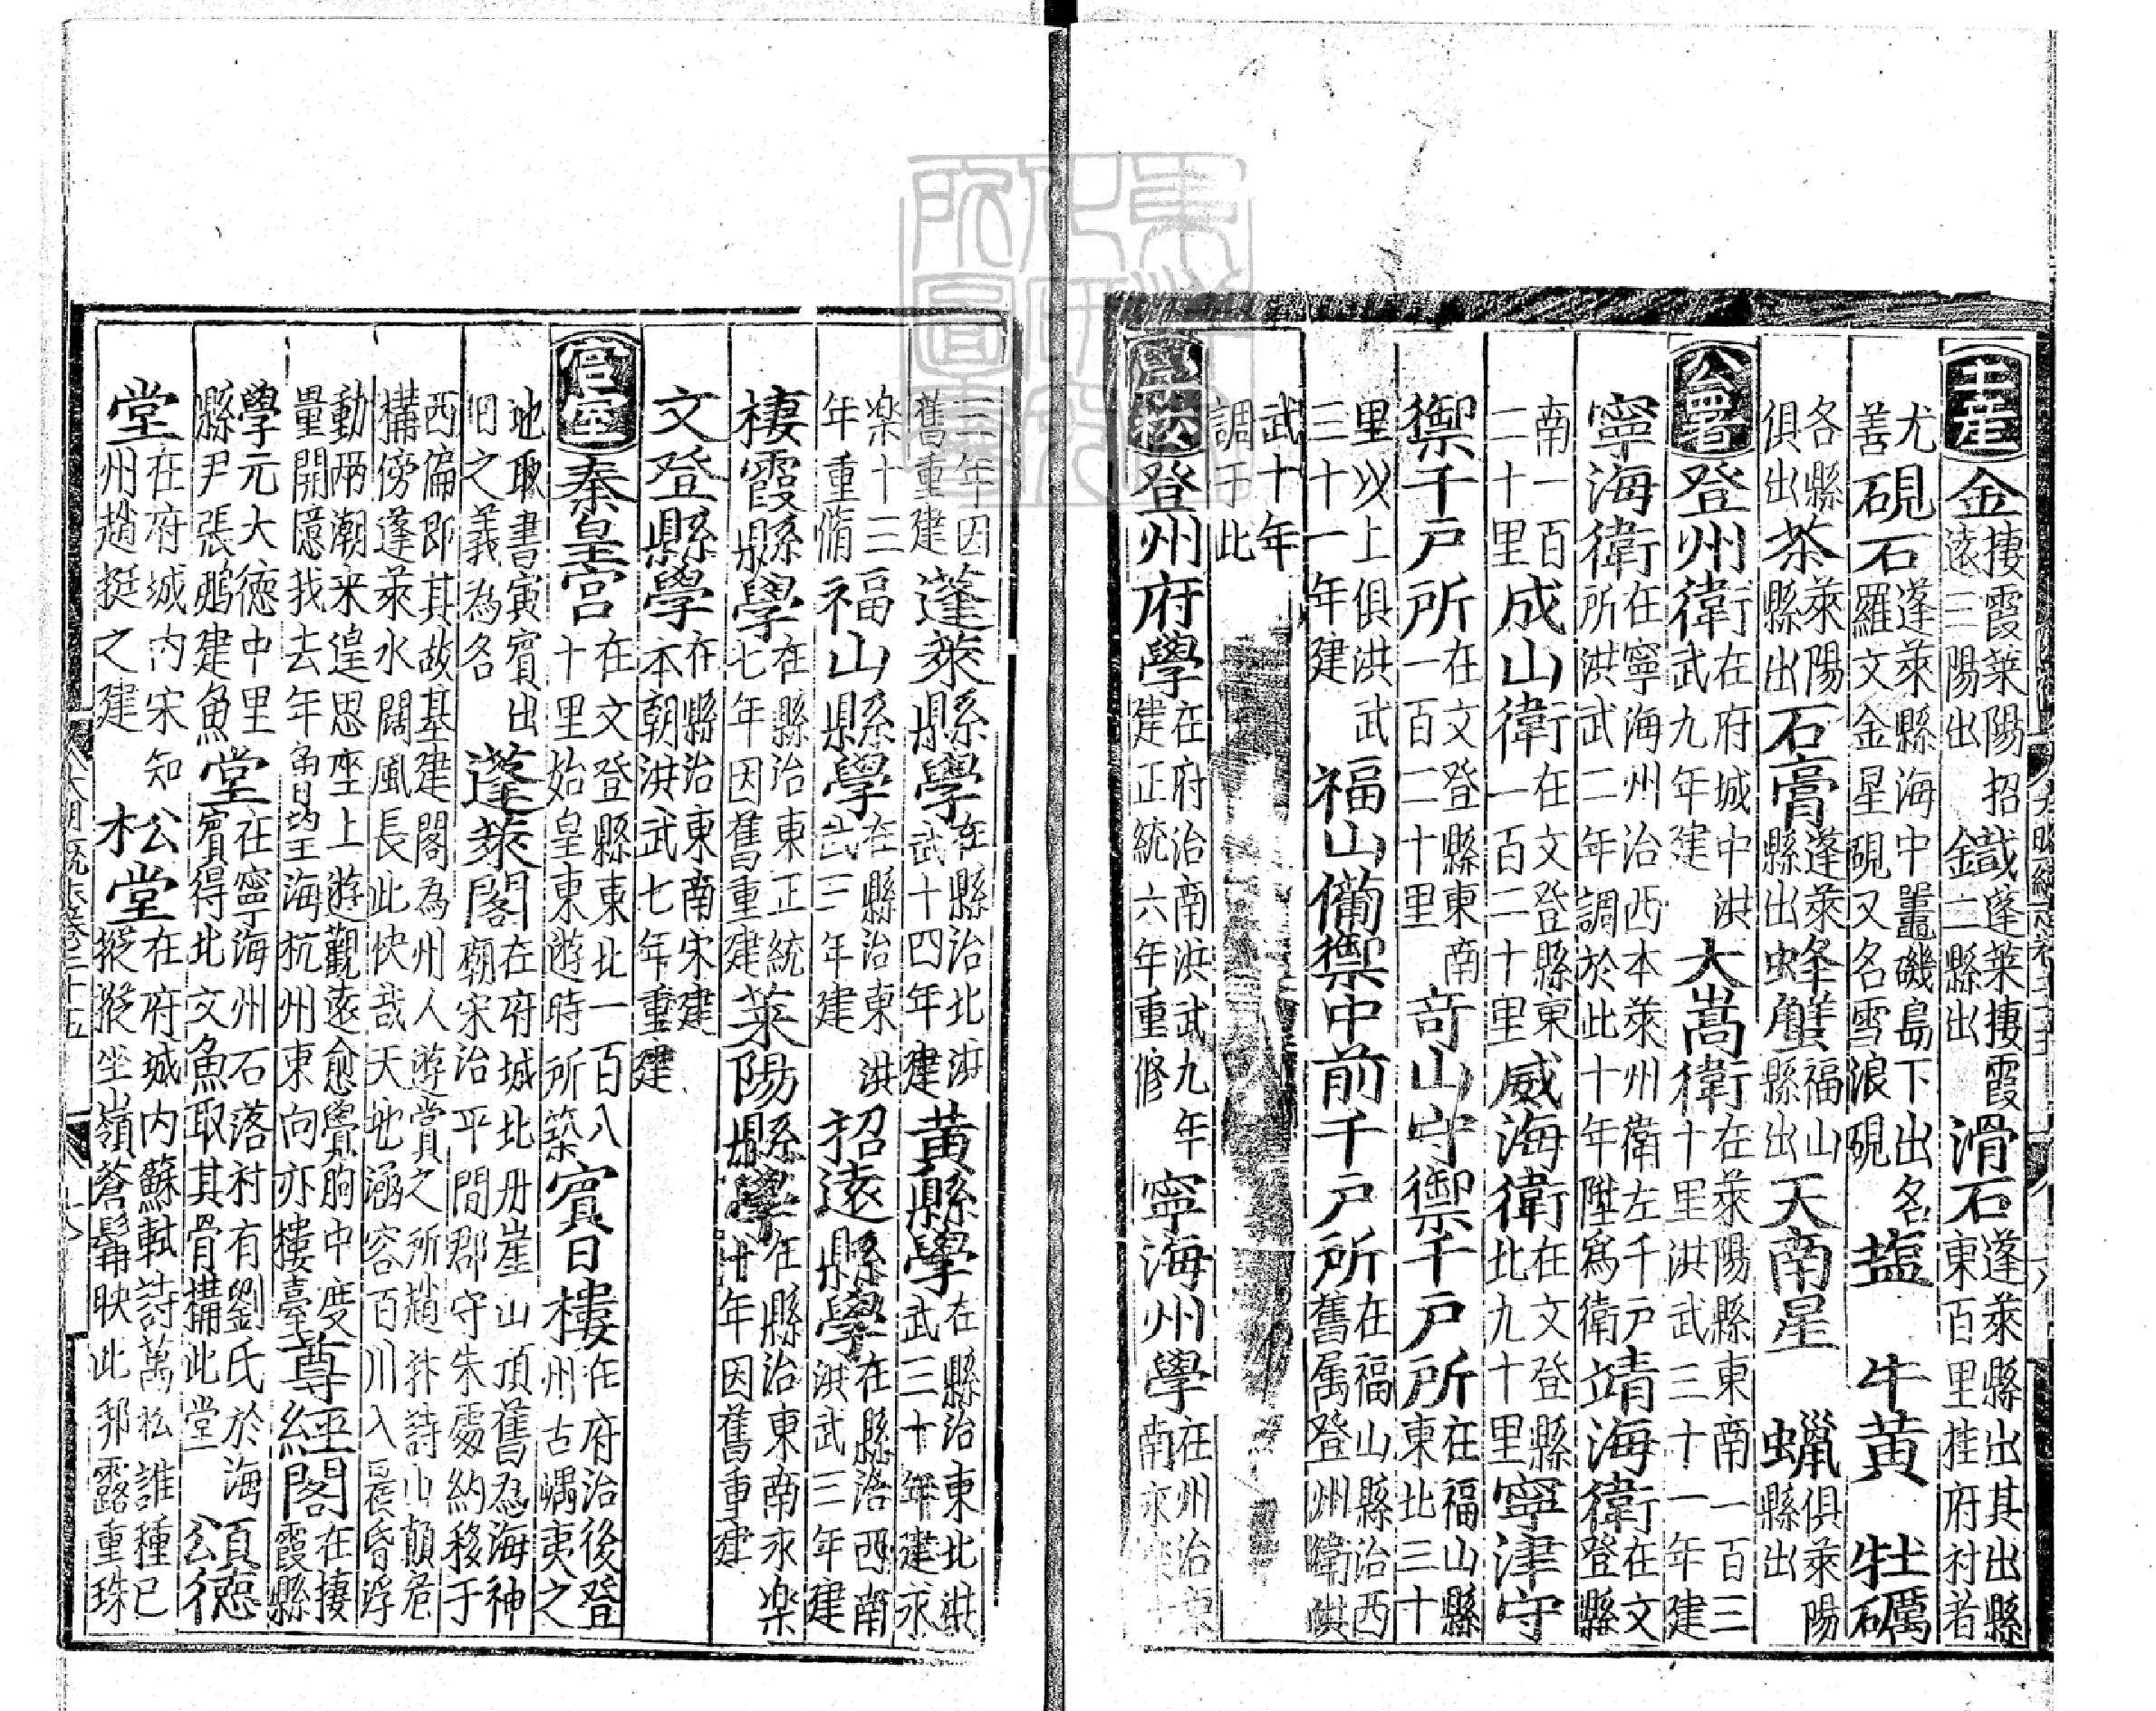 土産 金 棲霞萊陽招遠三陽出 鐡 蓬萊棲霞二縣出 滑石 蓬萊縣出其出縣東百里桂府村者
尤善 硯石 蓬萊縣海中鼉磯島下出名羅文金星硯又名雪浪硯 塩 牛黄 牡礪
各縣俱出 茶 萊陽縣出 石膏 蓬萊縣出 蜂蟹 福山縣出 天南星 蝋 俱萊陽縣出
公署 登州衛 在府城中洪武九年建 大嵩衛 在萊陽縣東南一百三十里洪武三十一年建
寧海衛 在寧海州治西本萊州衛左千戸所洪武二年調於此十年陞爲衛 靖海衛 在文登縣
南一百二十里 成山衛 在文登縣東一百二十里 威海衛 在文登縣北九十里 寧津守
禦千戸所 在文登縣東南一百二十里 竒山守禦千戸所 在福山縣東北三十
里以上俱洪武三十一年建 福山備禦中前千戸所 在福山縣治西舊属登州衛洪
武十年調于此
學校 登州府學 在府治南洪武九年建正統六年重修 寧海州學 在州治東南
三年因舊重建 蓬萊縣學 在縣治北洪武十四年建 黄縣學 在縣治東北洪武三十年建永
楽十三年重脩 福山縣學 在縣治東洪武三年建 招遠縣學 在縣治西南洪武三年建
棲霞縣學 在縣治東正統七年因舊重建 萊陽縣學 在縣治東南永楽廿年因舊重建
文登縣學 在縣治東南宋建本朝洪武七年重建
宮室 秦皇宮 在文登縣東北一百八十里始皇東遊時所築 賓日樓 在府治後登州古嵎夷之
地取書寅賓出日之義為名 蓬萊閣 在府城北丹崖山頂舊為海神廟宋治平間郡守朱處約移于
西偏即其故基建閣為州人遊賞之所趙抃詩山顛危構傍蓬萊水闊風長此快哉天地涵容百川入晨昏浮
動兩潮来遑思坐上遊觀遠愈覺胸中度量開憶我去年曾望海杭州東向亦樓臺 尊經閣 在棲霞縣
學元大徳中里縣尹張鵬建 魚堂 在寧海州石落村有劉氏於海濱得北文魚取其骨搆此堂 頌徳公徳
堂 在府城内宋知州趙挺之建 松堂 在府城内蘇軾詩萬松誰種已摐摐坐嶺蒼髯映此邦露重珠
大明一統志卷二十五